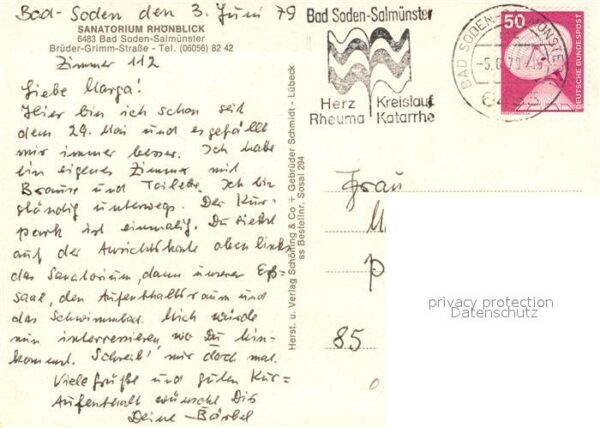 Bad-Soden den 3. Juni 79
SANATORIUM RHÖNBLICK
6483 Bad Soden-Salmünster
Brüder-Grimm-Straße - Tel. (06056) 82 42
Zimmer 112
Liebe Marga!
Hier bin ich schon seit
dem 29. Mai und es gefällt
mir immer besser. Ich habe
ein eigenes Zimmer mit
Brause und Toilette. Ich bin
ständig unterwegs. Der Kur=
park ist einmalig. Du siehst
auf der Ansichtskarte oben links
das Sanatorium, dann unseren Eß=
saal, den Aufenthaltsraum und
das Schwimmbad. Mich würde
nun interressieren, wo Du hin-
kommst. Schreib' mir doch mal.
Viele Grüße und guten Kur=
Aufenthalt wünscht Dir
Deine - Bärbel
Herst. u. Verlag Schöning & Co + Gebrüder Schmidt - Lübeck
ss Bestellnr. Sosal 294
Bad Soden-Salmünster
Herz Kreislauf
Rheuma Katarrhe
BAD SODEN-SALMÜNSTER
-5.6.79
50
DEUTSCHE BUNDESPOST
Frau
85
privacy protection
Datenschutz